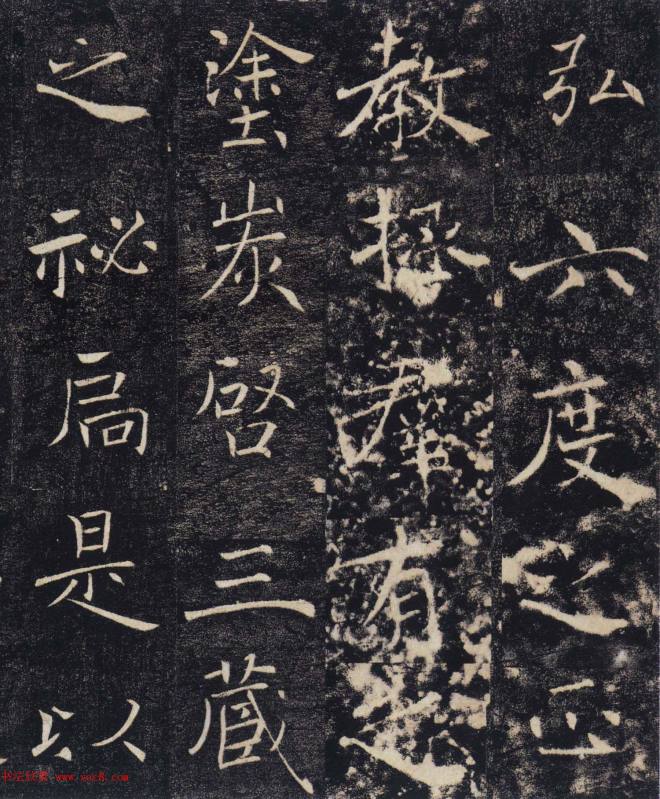 弘六度之正
教拯群有之
塗炭啓三藏
之祕扃是以
书法欣赏 www.yac8.com